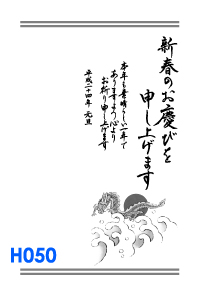 新春のお慶びを
申し上げます
本年も素晴らしい一年で
ありますよう心より
お祈り申し上げます
平成二十四年 元旦
H050